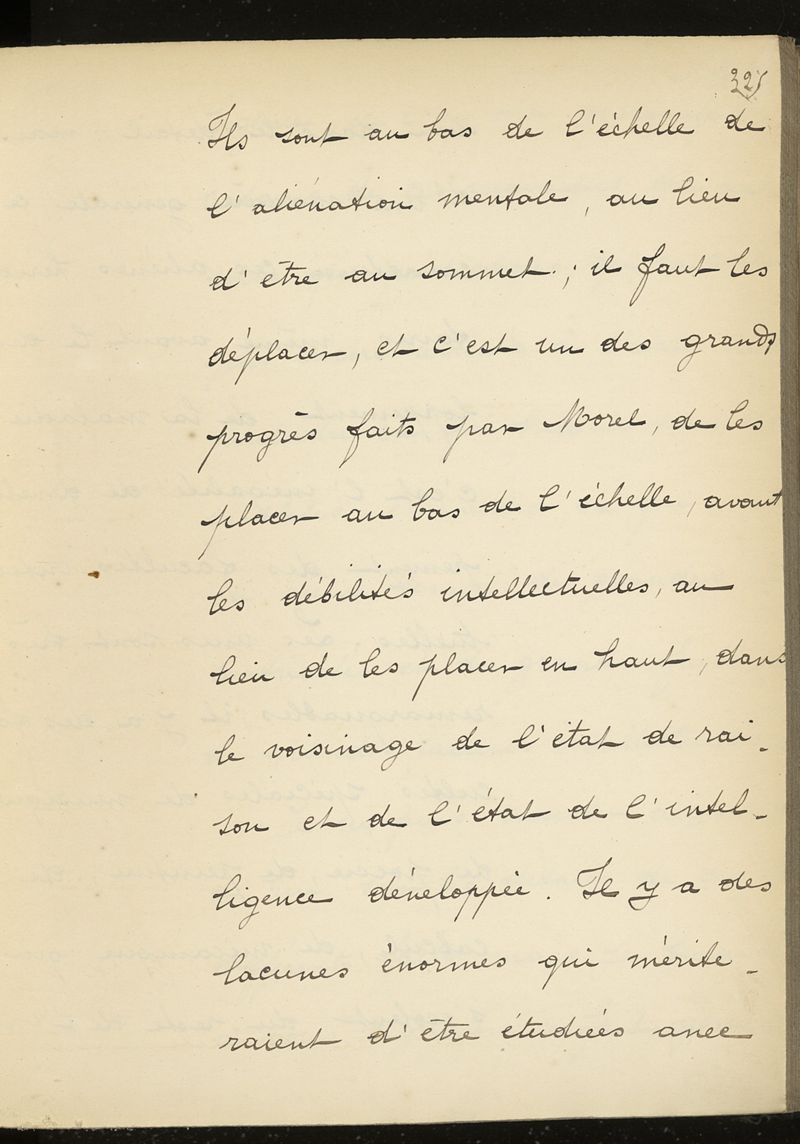 325
Ils sont au bas de l'échelle de
l'aliénation mentale, au lieu
d'être au sommet ; il faut les
déplacer, et c'est un des grands
progrès faits par Morel, de les
placer au bas de l'échelle, avant
les débilités intellectuelles, au
lieu de les placer en haut, dans
le voisinage de l'état de rai-
son et de l'état de l'intel-
ligence développée. Il y a des
lacunes énormes qui mérite-
raient d'être étudiées avec